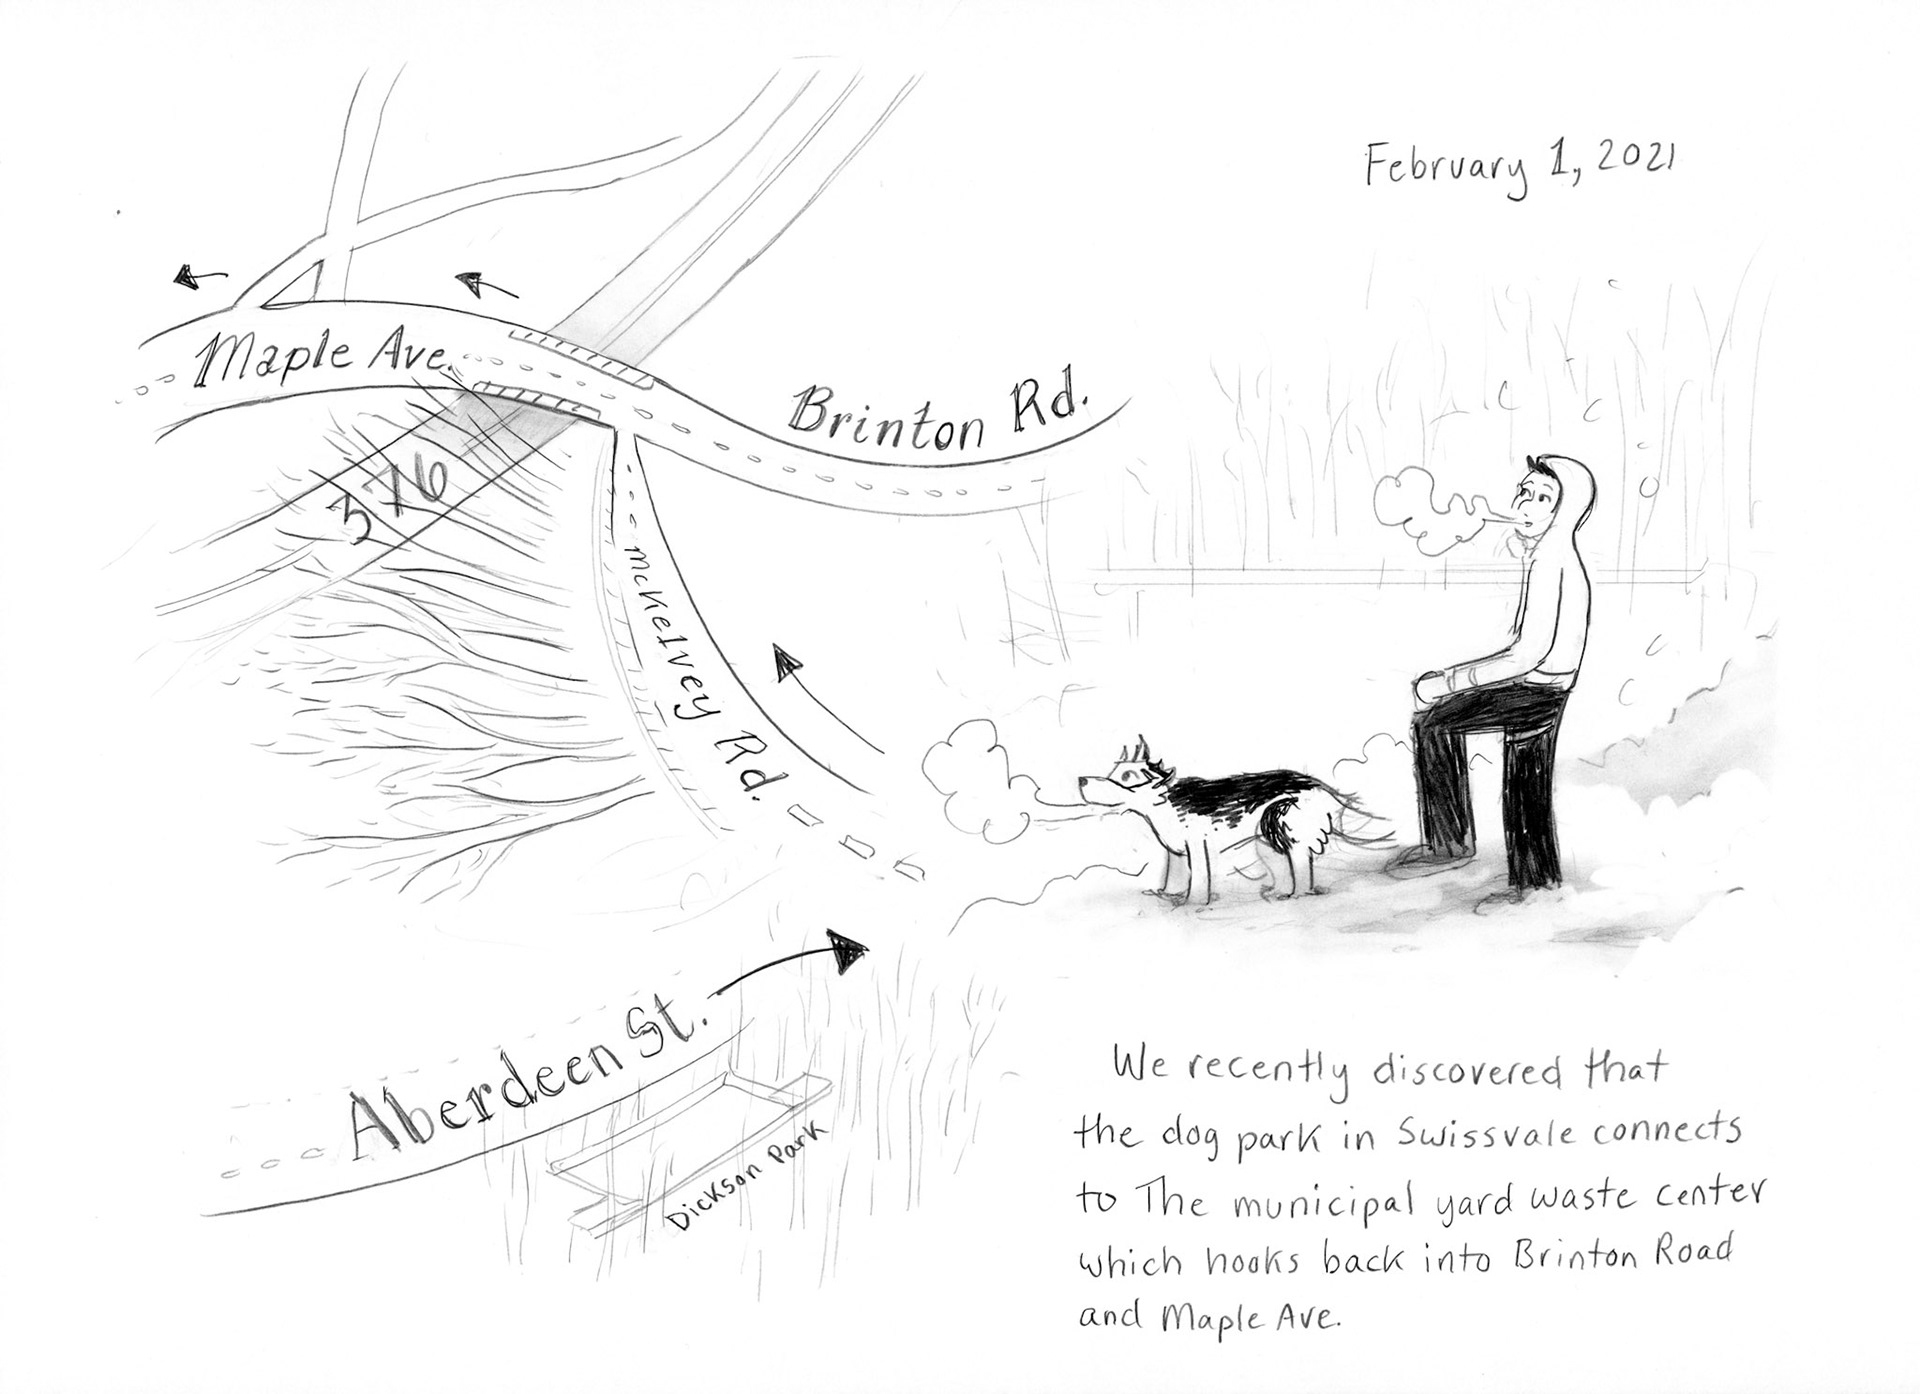 February 1, 2021
Maple Ave.
Brinton Rd.
376
McKelvey Rd.
Aberdeen St.
Dickson Park
We recently discovered that
the dog park in Swissvale connects
to The municipal yard waste center
which hooks back into Brinton Road
and Maple Ave.